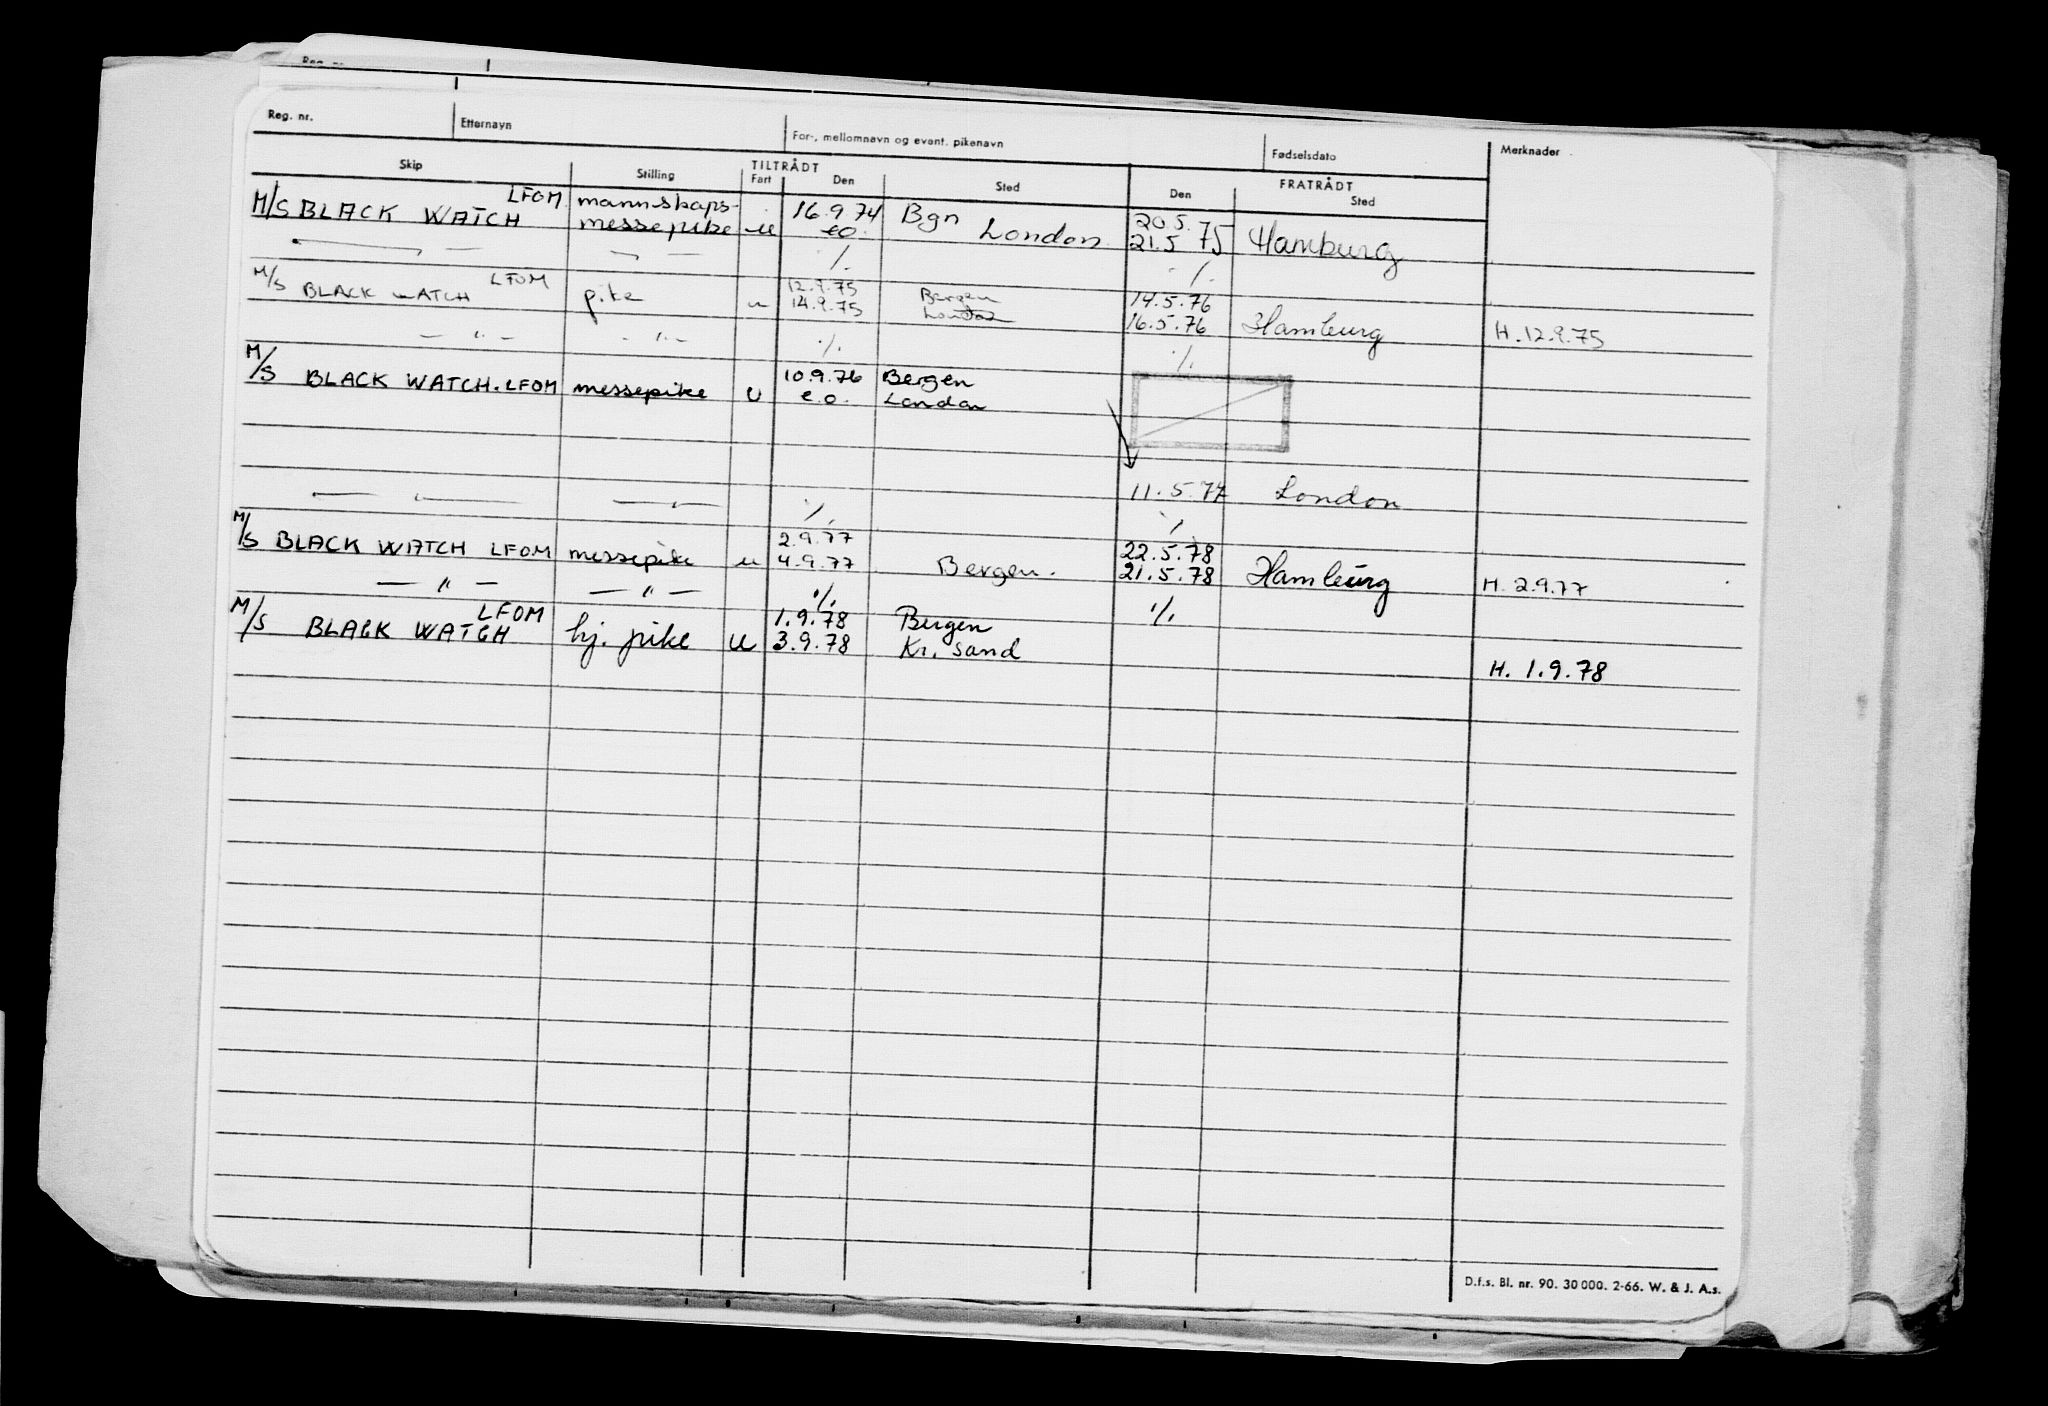 Reg. nr.
Reg. nr. Etternavn For-, mellomnavn og event. pikenavn Fødselsdato Merknader
TILTRÅDT FRATRÅDT
Skip Stilling Fart Den Sted Den Sted
LFOM mannskaps- 16.9.74 Bgn 20.5.
M/S BLACK WATCH messepike u eo. London 21.5 75 Hamburg
— " — — " — ./. ./.
M/S LFOM 12.9.75 Bergen 14.5.76
BLACK WATCH pike u 14.9.75 London 16.5.76 Hamburg H. 12.9.75
— " — — " — ./. ./.
M/S 10.9.76 Bergen
BLACK WATCH. LFOM messepike u e.o. London
— " — — " — ./. 11.5.77 London
./.
M/S 2.9.77 22.5.78
BLACK WATCH LFOM messepike u 4.9.77 Bergen. 21.5.78 Hamburg H. 2.9.77
— " — — " — ./. ./.
M/S LFOM 1.9.78 Bergen
BLACK WATCH hj. pike u 3.9.78 Kr. sand H. 1.9.78
D.f.s. Bl. nr. 90. 30 000. 2-66. W. & J. A.s.